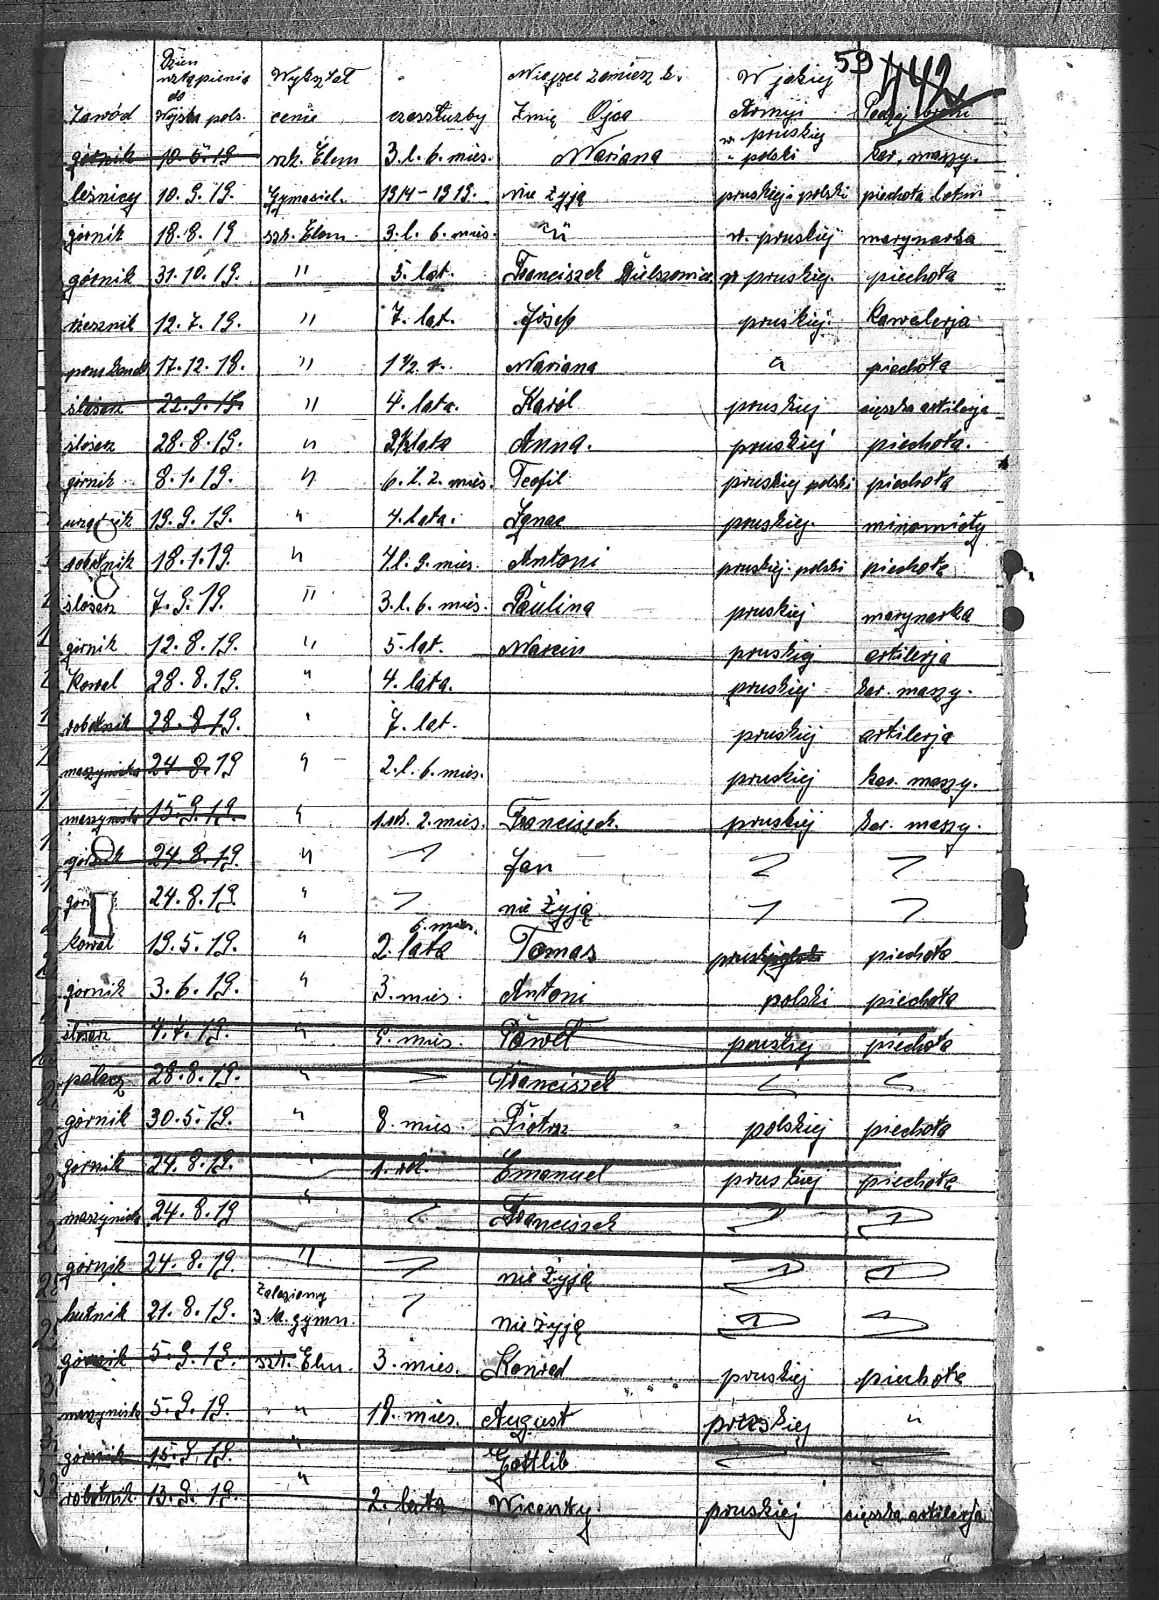 59 442
Dzień
wstąpienia Wykształ Miejsce zamieszk. W jakiej
do
Zawód Wojska pols. cenie czas służby Imię Ojca Armji Rodzaj broni
w pruskiej
górnik 10.6.19 szk. Elem 3.l.6.mies. Mariana i polski kar. maszy.
leśniczy 10.9.19. Gymasiel. 1914-1919. nie żyją pruskiej i polski piechota
górnik 18.8.19 szk. Elem. 3.l.6.mies. " w. pruskiej marynarka
górnik 31.10.19. " 5.lat. Franciszek w pruskiej. piechota
rzeznik 12.7.19. " 7.lat. Josef pruskiej. Kawalerja
17.12.18. " 1 1/2 r. Mariana " piechota
ślosarz 22.9.19. " 4.lata. Karol pruskiej cięszka artilerja
ślosarz 28.8.19. " 2 1/2 lata Anna. pruskiej piechota.
górnik 8.1.19. " 6.l.2.mies. Teofil pruskiej polski piechota
19.9.19. " 4.lata. Ignac pruskiej. minowioty
robotnik 18.1.19. " 4l.9.mies. Antoni pruskiej. polski piechota
ślosarz 7.9.19. " 3.l.6.mies. Paulina pruskiej marynarka
górnik 12.8.19. " 5.lat. Marcin pruskiej artilerja
Kowal 28.8.19. " 4.lata. pruskiej kar. maszy.
robotnik 28.8.19. " 7.lat. pruskiej artilerja
maszynista 24.8.19 " 2.l.6.mies. pruskiej kar. maszy.
maszynista 15.9.19. " 1.rok.2.mies. Franciszek. pruskiej kar. maszy.
górnik 24.8.19. " Jan
24.8.19. " nie żyją
6.mies.
kowal 19.5.19. " 2.lata Tomas piechota
górnik 3.6.19. " 3.mies. Antoni polski piechota
ślosarz 4.7.19. " mies. Paweł pruskiej piechota
palacz 28.8.19. " Franciszek
górnik 30.5.19. " 8.mies. Piotr polskiej piechota
górnik 24.8.19. " 1.rok. Emanuel pruskiej piechota
maszynista 24.8.19 " Franciszek
górnik 24.8.19. " nie żyją
hutnik 21.8.19. 3.kl.gymn. nie żyją
górnik 5.9.19. szk. Elm. 3.mies. Konrad pruskiej piechota
maszynista 5.9.19. " 18.mies. August pruskiej "
górnik 15.9.19. " Gottlib
robotnik 13.9.19. " 2.lata Wicenty pruskiej cięszka artilerja